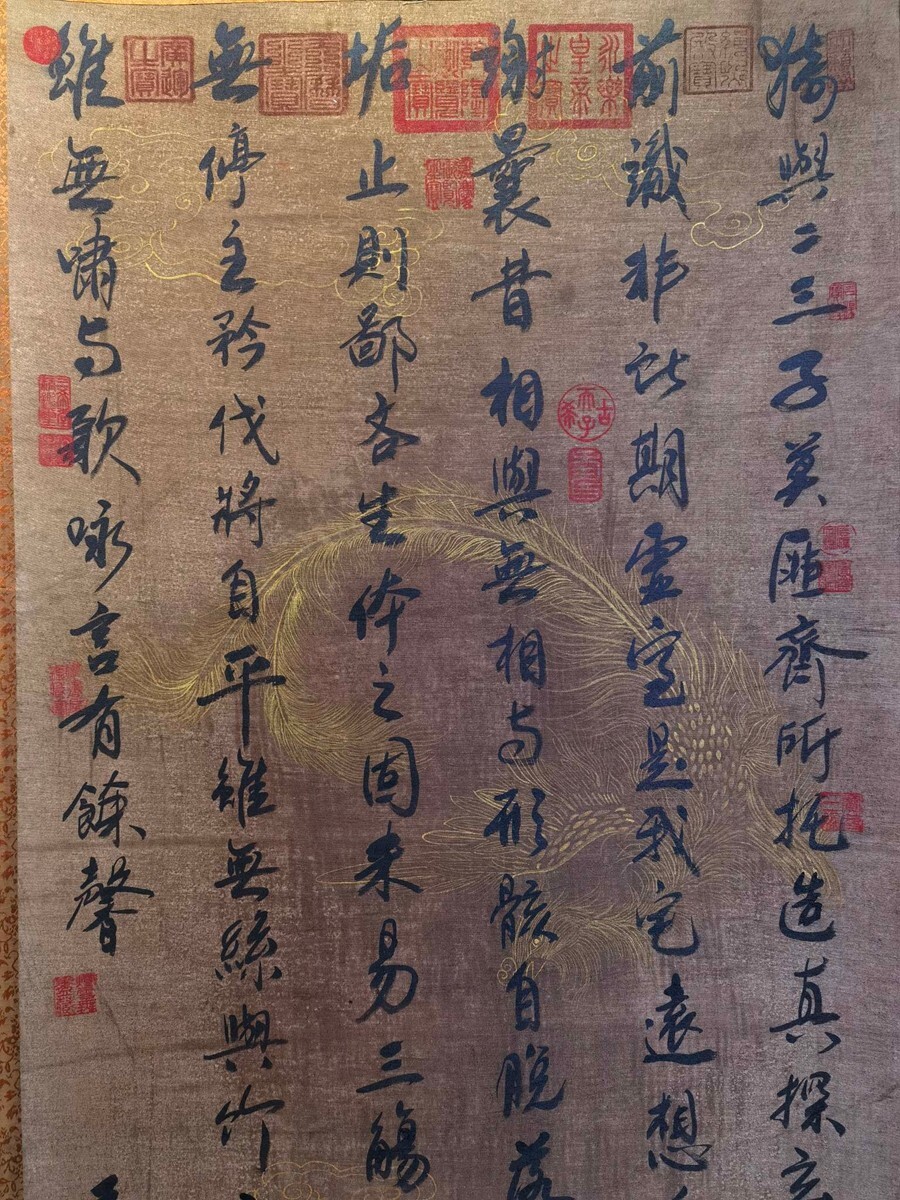 猗與二三子莫匪齊所托造真探玄
前識非所期虛室是我宅遠想
謝曩昔相與無相与形骸自脫落
垢止則鄙吝生体之固未易三觴
無停主矜伐將自平雖無絲與竹
雖無嘯与歌詠言有餘馨
古希天子